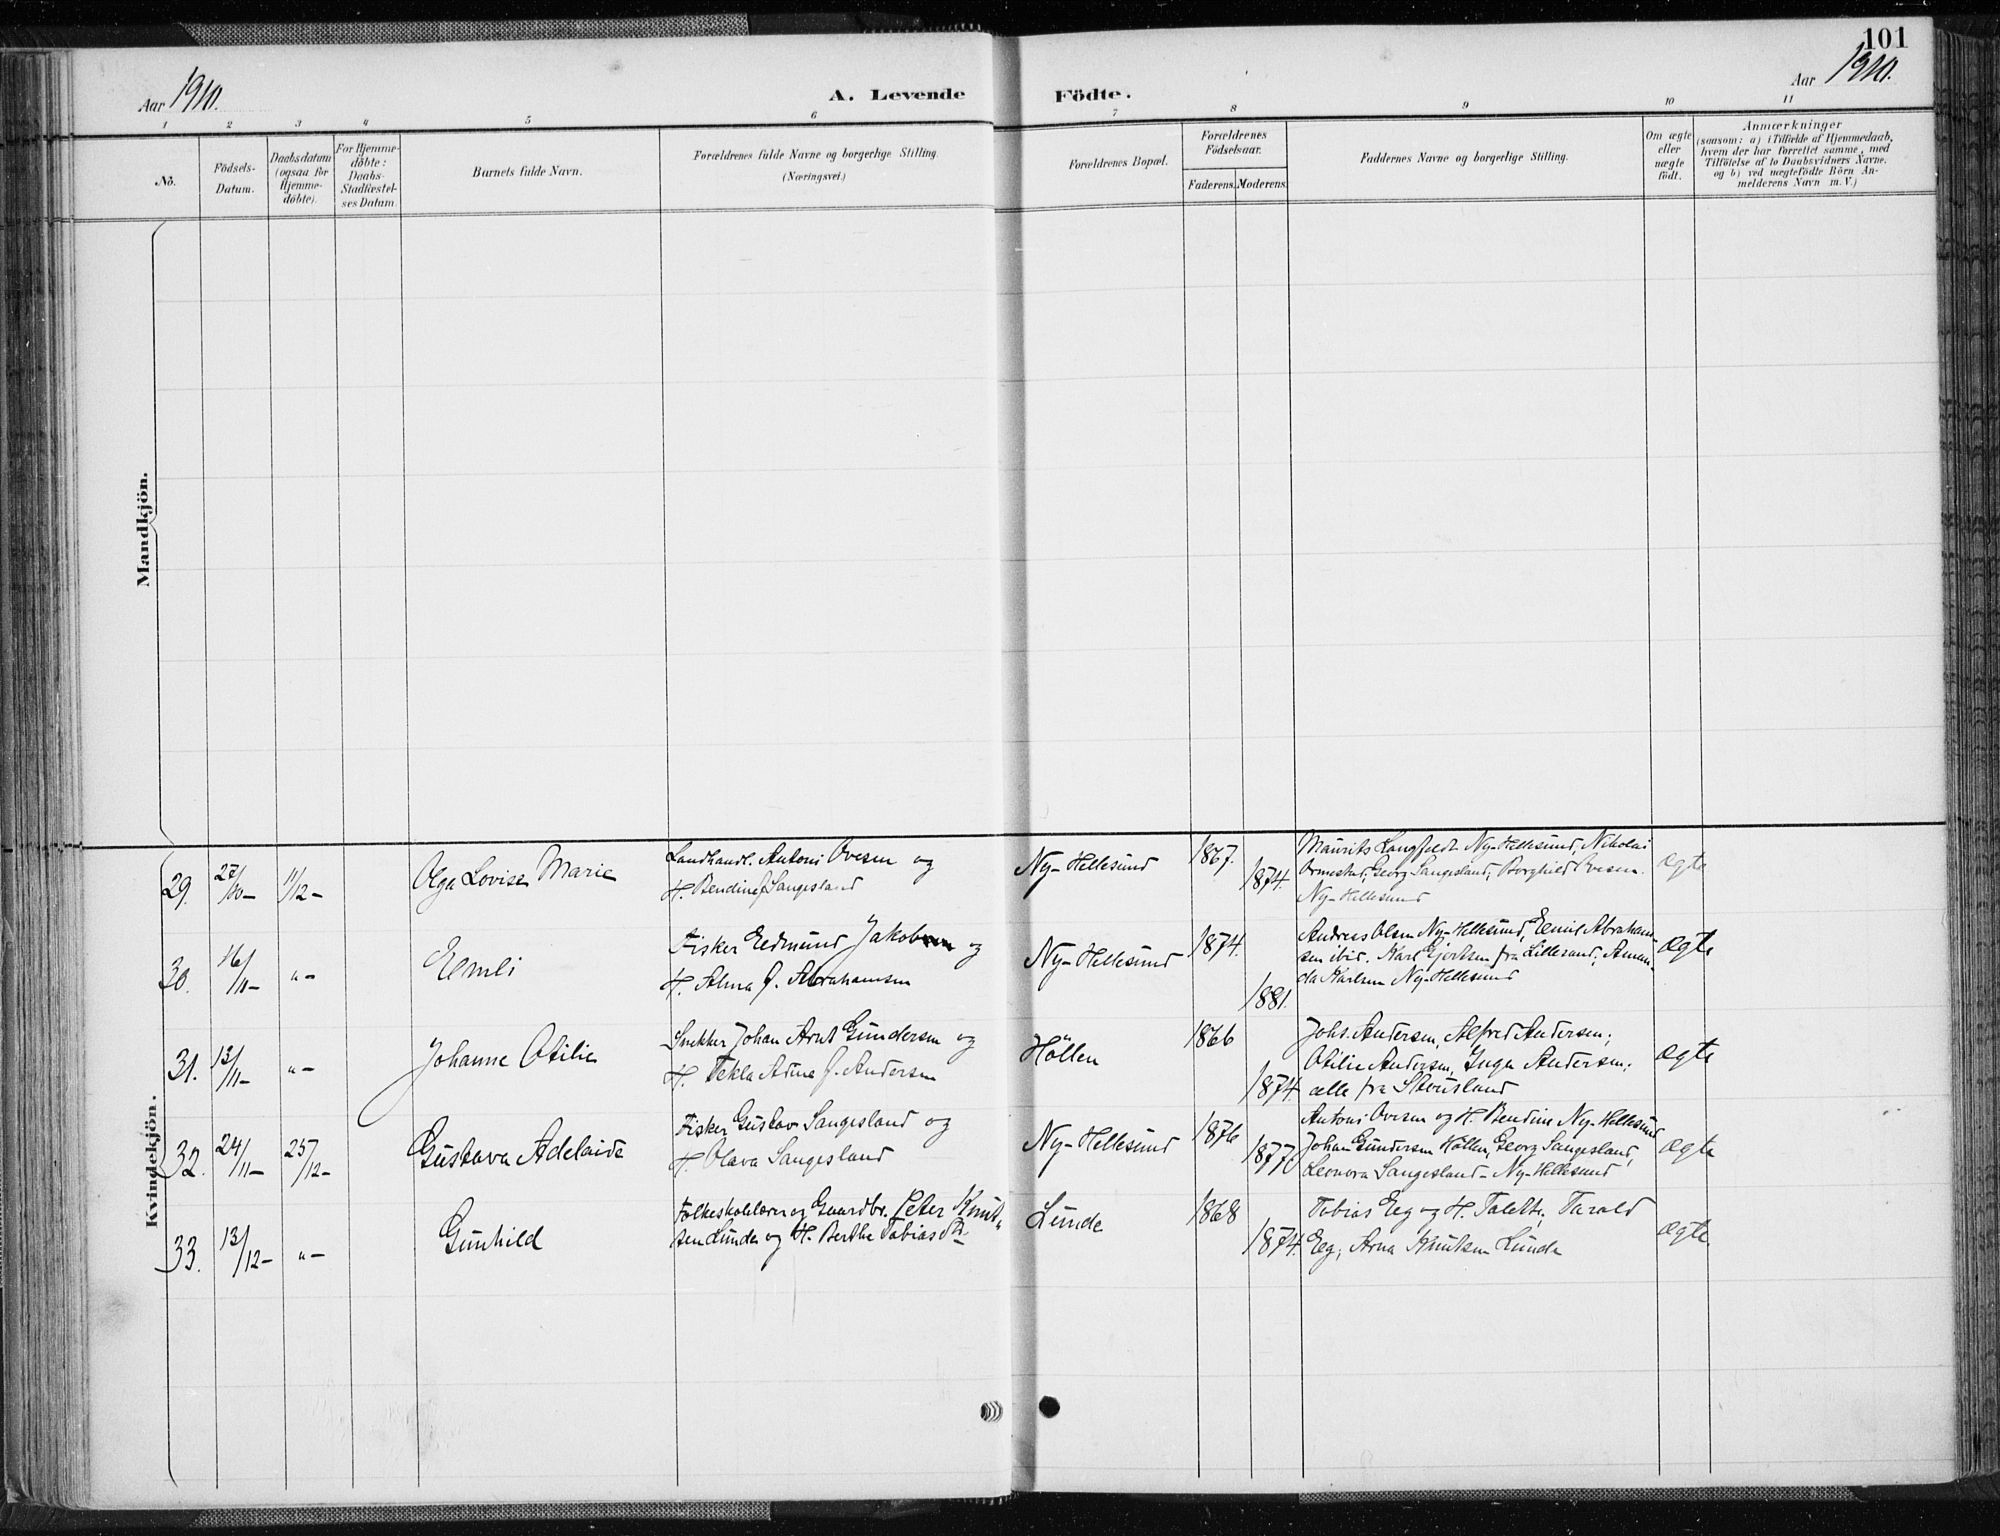 101
Aar 1910.
A. Levende Födte.
Aar 1910.
1 2 3 4 5 6 7 8 9 10 11
No.
Födsels-
Datum.
Daabsdatum
(ogsaa for
Hjemme-
döbte).
For Hjemme-
döbte:
Daabs-
Stadfæstel-
ses Datum.
Barnets fulde Navn.
Forældrenes fulde Navne og borgerlige Stilling.
(Næringsvei.)
Forældrenes Bopæl.
Forældrenes
Födselsaar.
Faderens. Moderens.
Faddernes Navne og borgerlige Stilling.
Om ægte
eller
uægte
födt.
Anmærkninger
(saasom: a) i Tilfælde af Hjemmedaab,
hvem der har forrettet samme, med
Tilföielse af to Daabsvidners Navne,
og b) ved uægtefödte Börn An-
melderens Navn m. V.)
Mandkjön.
Kvindekjön.
29. 27/10- 11/12- Olga Lovise Marie
Landhandl. Antoni Ovesen og
H. Bendine f. Langesland
Ny-Hellesund 1867. 1874.
Maurits Langfeldt Ny-Hellesund, Nikolai
Ormestad, Georg Langesland, Borghild Ovesen
Ny-Hellesund
ægte
30. 16/11- "-
Fisker Edmund Jakobsen og
H. Alma f. Abrahamsen
Ny-Hellesund 1874. 1881.
Andreas Olsen Ny-Hellesund, Emil Abraham-
sen ibid. Karl fra Lillesand, Aman-
da Karlsen Ny-Hellesund
ægte
31. 13/11- "- Johanne Otilie
Snekker Johan Arnt Gundersen og
H. Tekla f. Andersen
Höllen 1866 1874.
Johs. Andersen, Alfred Andersen;
Otilie Andersen, Inga Andersen;
alle fra
ægte
32. 24/11- 25/12- Gustava Adelaide
Fisker Gustav Langesland og
H. Olava Langesland
Ny-Hellesund 1876 1877.
Antoni Ovesen og H. Bendine Ny-Hellesund
Johan Gundersen Höllen, Georg Langesland,
Leonora Langesland - Ny-Hellesund
ægte
33. 13/12- "- Gunhild
Folkeskolelærer og Gaardbr. Peter Knut-
sen Lunde og H. Berthe Tobiasdtr
Lunde 1868 1874.
Tobias Eeg og H. Talette; Tarald
Eeg; Arna Knutsen Lunde
ægte